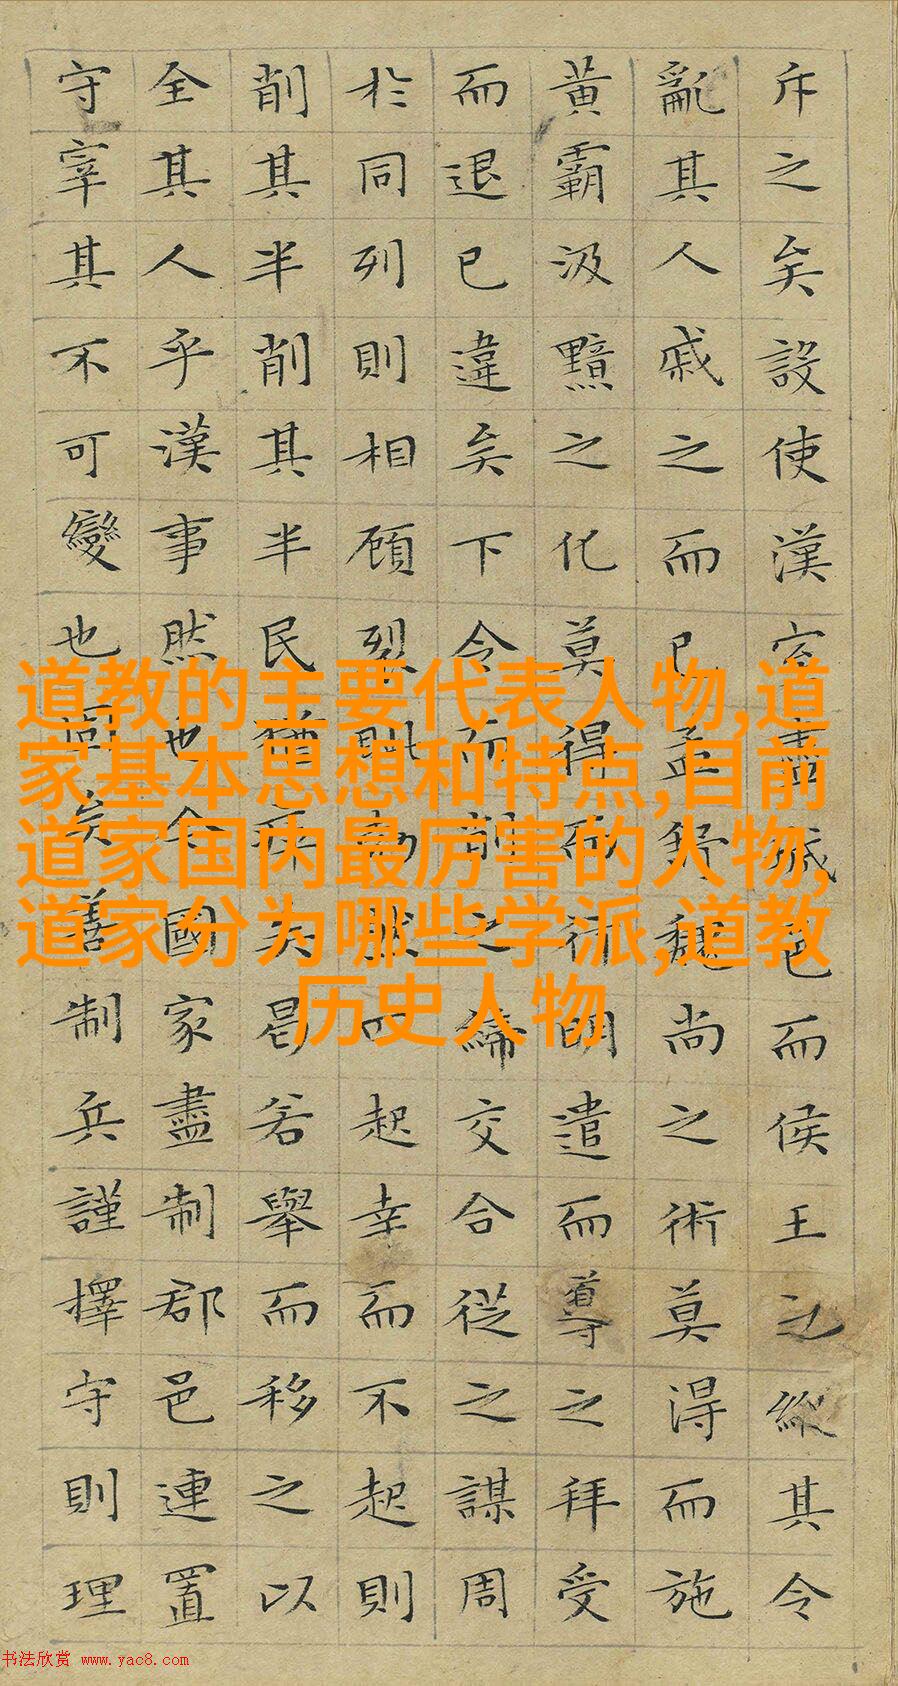 斥之矣設使漢室盡城邑而侯王之縱其令
亂其人戚之而已孟舒魏尚之術莫得而施
黃霸汲黯之化莫得而行明遣而導之拜受
而退已違矣下令而削之締交合從之謀周
於同列則相顧裂眥勃然而起幸而不起則
削其半削其半民猶瘁矣曷若舉而移之以
全其人乎漢事然也今國家盡制郡邑連置
守宰其不可變也固矣善制兵謹擇守則理
道教的主要代表人物,道
家基本思想和特点,目前
道家国内最厉害的人物,
道家分为哪些学派,道教
历史人物
书法欣赏 www.yac8.com